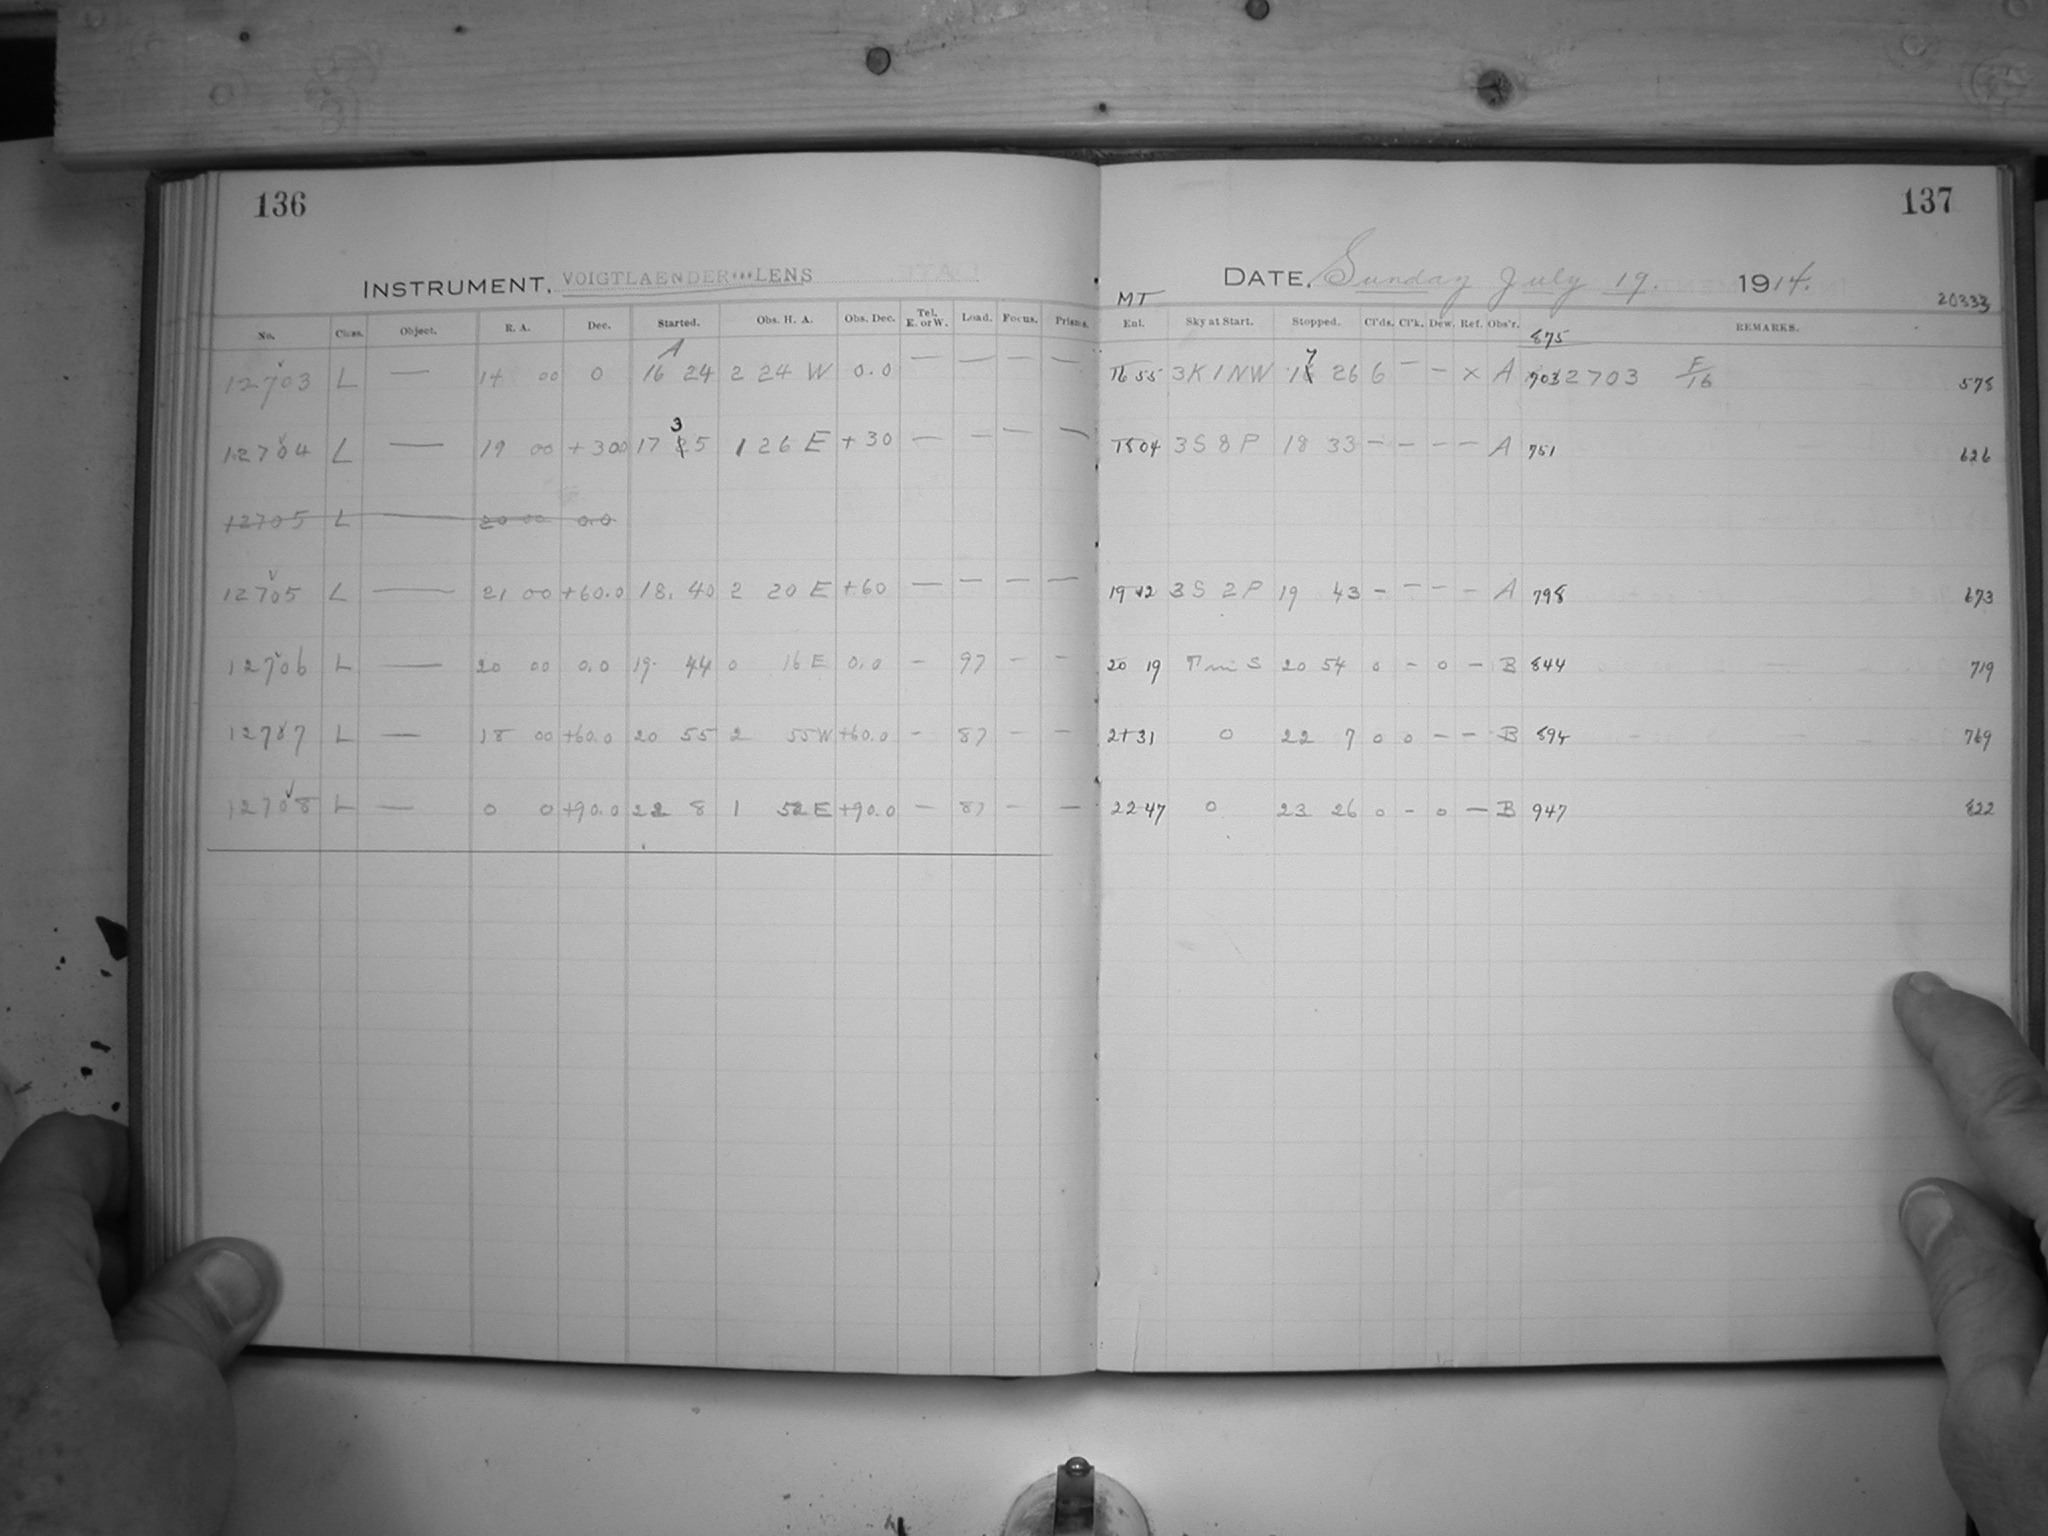 136
137
INSTRUMENT, VOIGTLAENDER LENS
DATE, Sunday July 19. 1914.
MT
20333
No. Class. Object. R. A. Dec. Started. Obs. H. A. Obs. Dec. Tel. E. or W. Load. Focus. Prisms. Enl. Sky at Start. Stopped. Cl'ds. Cl'k. Dew. Ref. Obs'r. REMARKS.
875
A
12703 L — 14 00 0 16 24 2 24 W 0.0 — — — — 1655 3K1NW 17 26 6 — — x A 703 2703 F/16 578
12704 L — 19 00 +30.0 17 35 1 26 E +30 — — — — 1804 3S8P 18 33 — — — — A 751 626
12705 L — 20 00 0.0
12705 L — 21 00 +60.0 18. 40 2 20 E +60 — — — — 19 12 3S2P 19 43 — — — — A 798 673
12706 L — 20 00 0.0 19 44 0 16 E 0.0 — 97 — — 20 19 S 20 54 0 — 0 — B 844 719
12707 L — 18 00 +60.0 20 55 2 55W +60.0 — 87 — — 21 31 0 22 7 0 0 — — B 894 769
12708 L — 0 0 +90.0 22 8 1 52 E +90.0 — 87 — — 22 47 0 23 26 0 — 0 — B 947 822